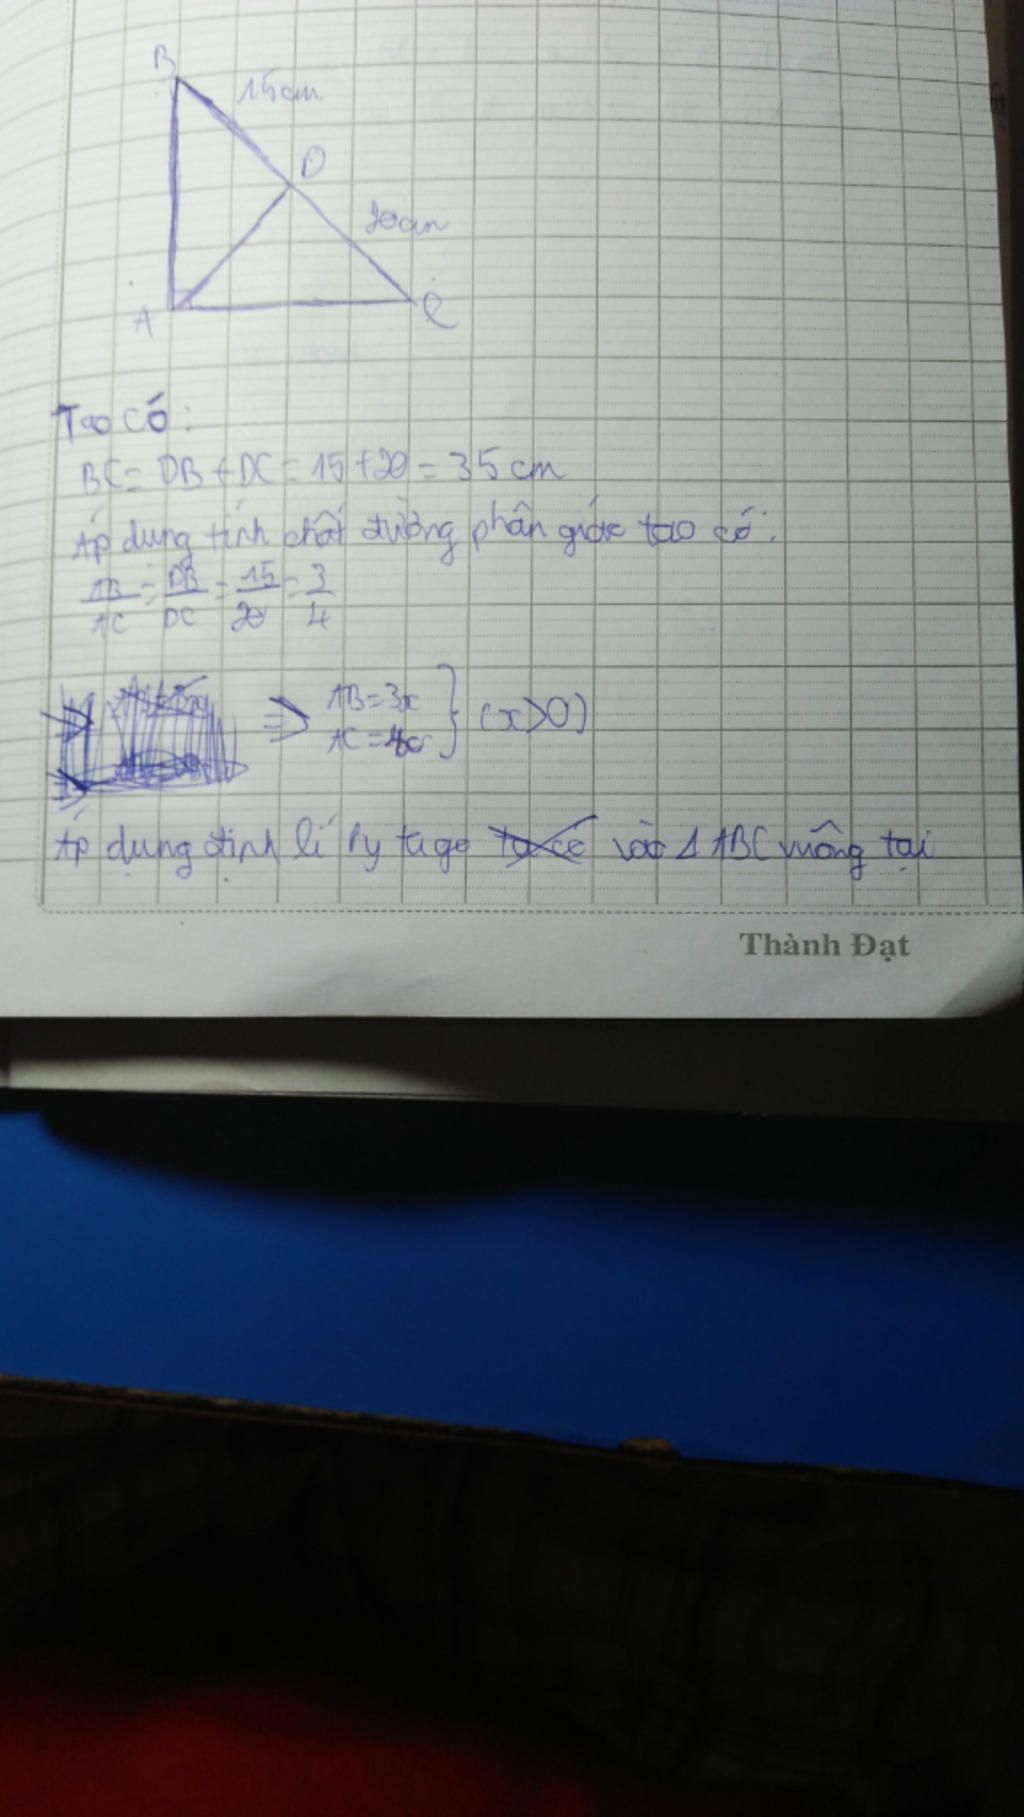 B
15cm
D
20cm
A
C
Tao có:
BC = DB + DC = 15 + 20 = 35 cm
Áp dụng tính chất đường phân giác tao có:
AB/AC = DB/DC = 15/20 = 3/4
=> AB = 3x
AC = 4x } (x>0)
Áp dụng định lí Py ta go vào Δ ABC vuông tại
Thành Đạt